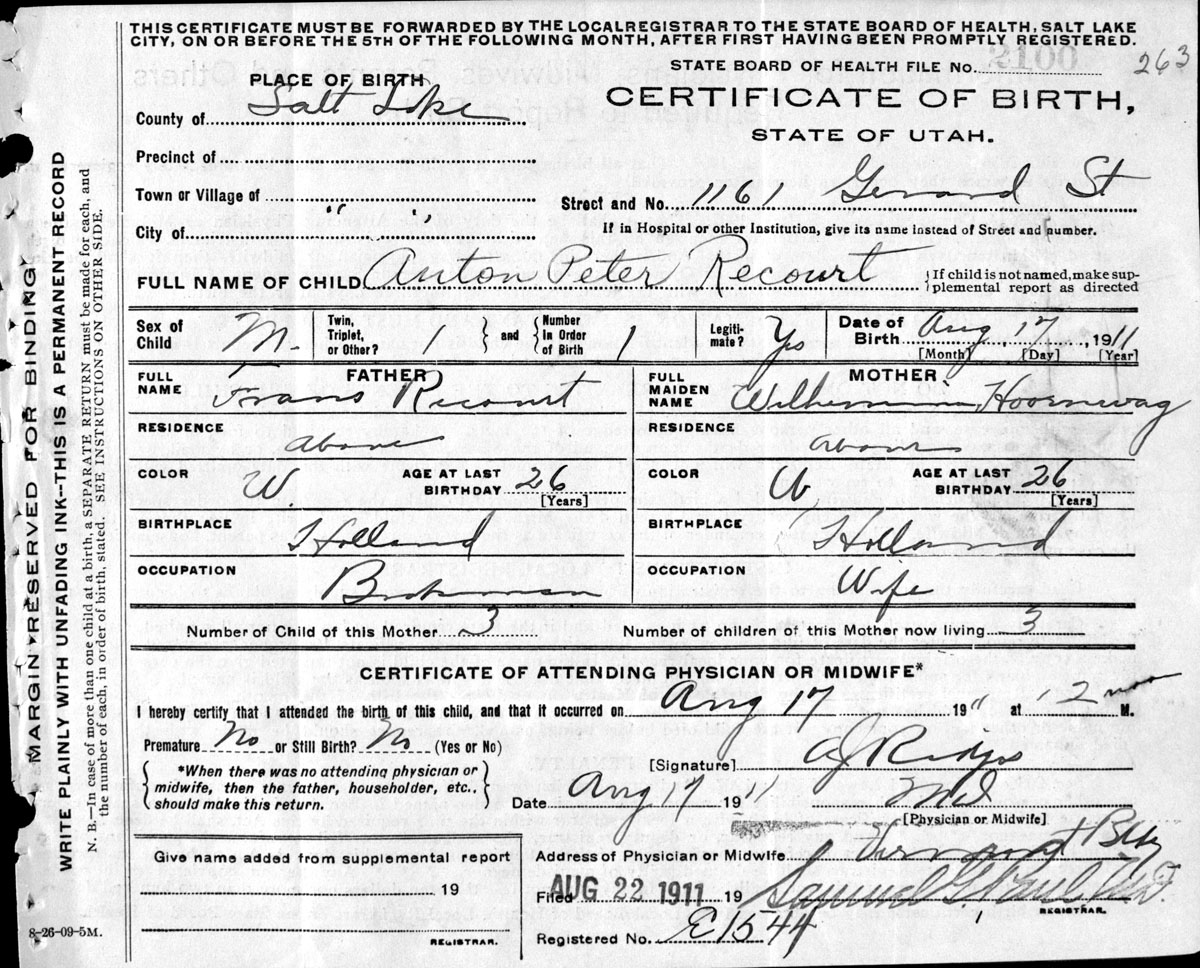 THIS CERTIFICATE MUST BE FORWARDED BY THE LOCAL REGISTRAR TO THE STATE BOARD OF HEALTH, SALT LAKE
CITY, ON OR BEFORE THE 5TH OF THE FOLLOWING MONTH, AFTER FIRST HAVING BEEN PROMPTLY REGISTERED.
STATE BOARD OF HEALTH FILE No. 2100 263
PLACE OF BIRTH
CERTIFICATE OF BIRTH,
STATE OF UTAH.
County of Salt Lake
Precinct of
Town or Village of
Street and No. 1161 Gerard St
City of " "
If in Hospital or other Institution, give its name instead of Street and number.
FULL NAME OF CHILD Anton Peter Recourt
{If child is not named, make sup-
plemental report as directed
Sex of Child M. Twin, Triplet, or Other? 1 } and { Number In Order of Birth 1 Legiti-mate? Ys Date of Birth Aug 17, 1911
[Month] [Day] [Year]
FATHER MOTHER
FULL NAME Frans Recourt FULL MAIDEN NAME Hoornwag
RESIDENCE above RESIDENCE above
COLOR W. AGE AT LAST BIRTHDAY 26 [Years] COLOR W AGE AT LAST BIRTHDAY 26 [Years]
BIRTHPLACE Holland BIRTHPLACE Holland
OCCUPATION OCCUPATION Wife
Number of Child of this Mother 3 Number of children of this Mother now living 3
CERTIFICATE OF ATTENDING PHYSICIAN OR MIDWIFE*
I hereby certify that I attended the birth of this child, and that it occurred on Aug 17 1911 at 12 M.
Premature No or Still Birth? No (Yes or No)
*When there was no attending physician or
midwife, then the father, householder, etc.,
should make this return.
[Signature]
Date Aug 17 1911 Md
[Physician or Midwife]
Give name added from supplemental report
19
REGISTRAR.
Address of Physician or Midwife
Filed AUG 22 1911 19 Samuel G. Paul
REGISTRAR.
Registered No. E1544
8-26-09-5M.
MARGIN RESERVED FOR BINDING
WRITE PLAINLY WITH UNFADING INK--THIS IS A PERMANENT RECORD
N. B.--In case of more than one child at a birth, a SEPARATE RETURN must be made for each, and
the number of each, in order of birth, stated. SEE INSTRUCTIONS ON OTHER SIDE.